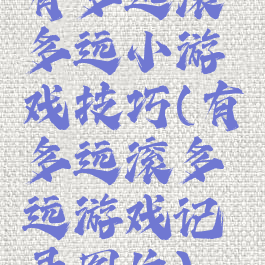 有多远滚
多远小游
戏技巧(有
多远滚多
远游戏记
录图片)